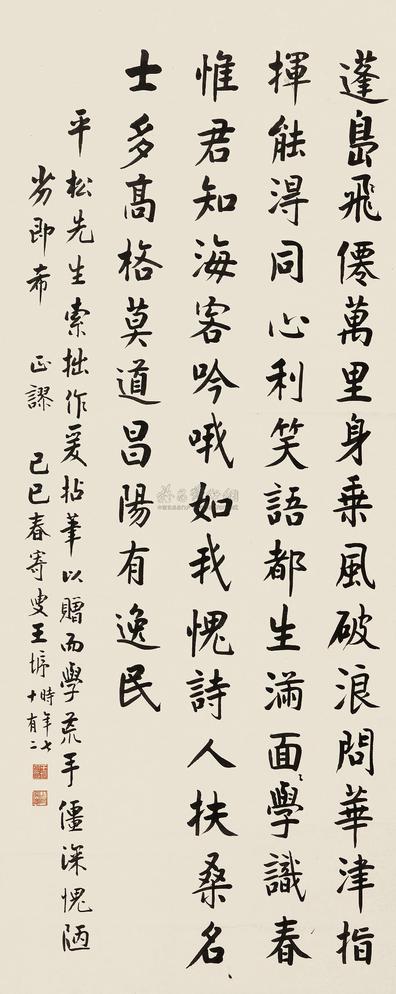 蓬島飛僊萬里身乘風破浪問華津指
揮能得同心利笑語都生滿面春學識
惟君知海客吟哦如我愧詩人扶桑名
士多高格莫道昌陽有逸民
平松先生索拙作爰拈筆以贈而學荒手僵深愧陋
劣即希 正謬 己巳春寄叟王塀時年七
十有二